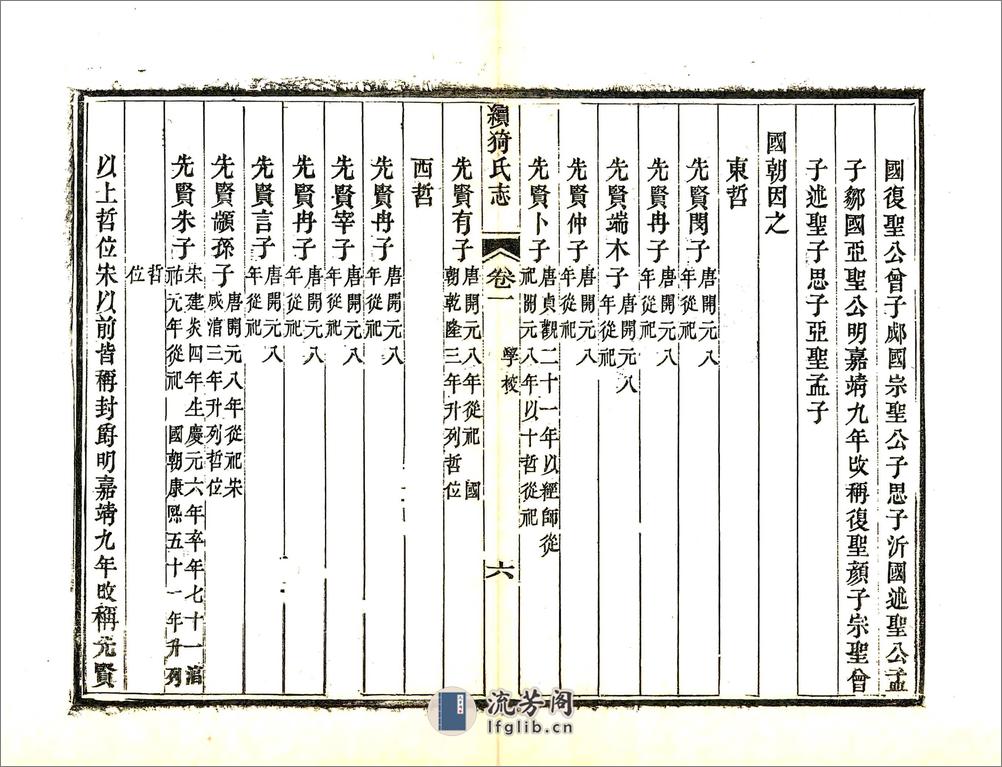 國復聖公曾子郕國宗聖公子思子沂國述聖公孟
子鄒國亞聖公明嘉靖九年改稱復聖顏子宗聖曾
子述聖子思子亞聖孟子
國朝因之
東哲
先賢閔子唐開元八年從祀
先賢冉子唐開元八年從祀
先賢端木子唐開元八年從祀
先賢仲子唐開元八年從祀
先賢卜子唐貞觀二十一年以經師從祀開元八年以十哲從祀
續猗氏志 卷一 學校 六
先賢有子唐開元八年從祀 國朝乾隆三年升列哲位
西哲
先賢冉子唐開元八年從祀
先賢宰子唐開元八年從祀
先賢冉子唐開元八年從祀
先賢言子唐開元八年從祀
先賢顓孫子唐開元八年從祀宋咸淯三年升列哲位
先賢朱子宋建炎四年生慶元六年卒年七十一淯祐元年從祀 國朝康熙五十一年升列
哲位
以上哲位宋以前皆稱封爵明嘉靖九年改稱先賢
流芳阁
lfglib.cn